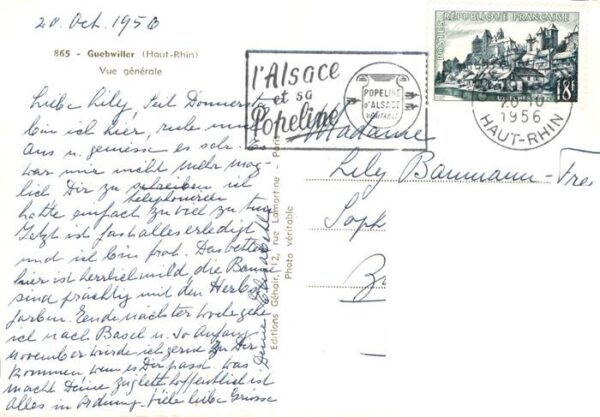 20. Oct. 1956
865 - Guebwiller (Haut-Rhin)
Vue générale
Liebe Lily, Seit Donnerst
bin ich hier, ruhe mich
aus u. geniesse es sehr. Es
war mir nicht mehr mög-
lich Dir zu schreiben ich
telephonieren
hatte einfach zu viel zu tun
Jetzt ist fast alles erledigt
und ich bin froh. Das Wetter
hier ist herrlich mild die Bäume
sind prächtig mit den Herbst
farben. Ende nächster Woche gehe
ich nach Basel u. so Anfang
November würde ich gerne zu Dir
kommen wenn es Dir passt. Was
macht Deine hoffentlich ist
alles in Ordnung. Viele liebe Grüsse
Deine
Editions Géhair, 12, rue Lamartine - Paris
Photo véritable
l'Alsace
et sa
Popeline
POPELINE
d'ALSACE
VÉRITABLE
RÉPUBLIQUE FRANÇAISE
POSTES
18F
20-10
1956
HAUT-RHIN
Madame
Lily Baumann-Frey
Soph